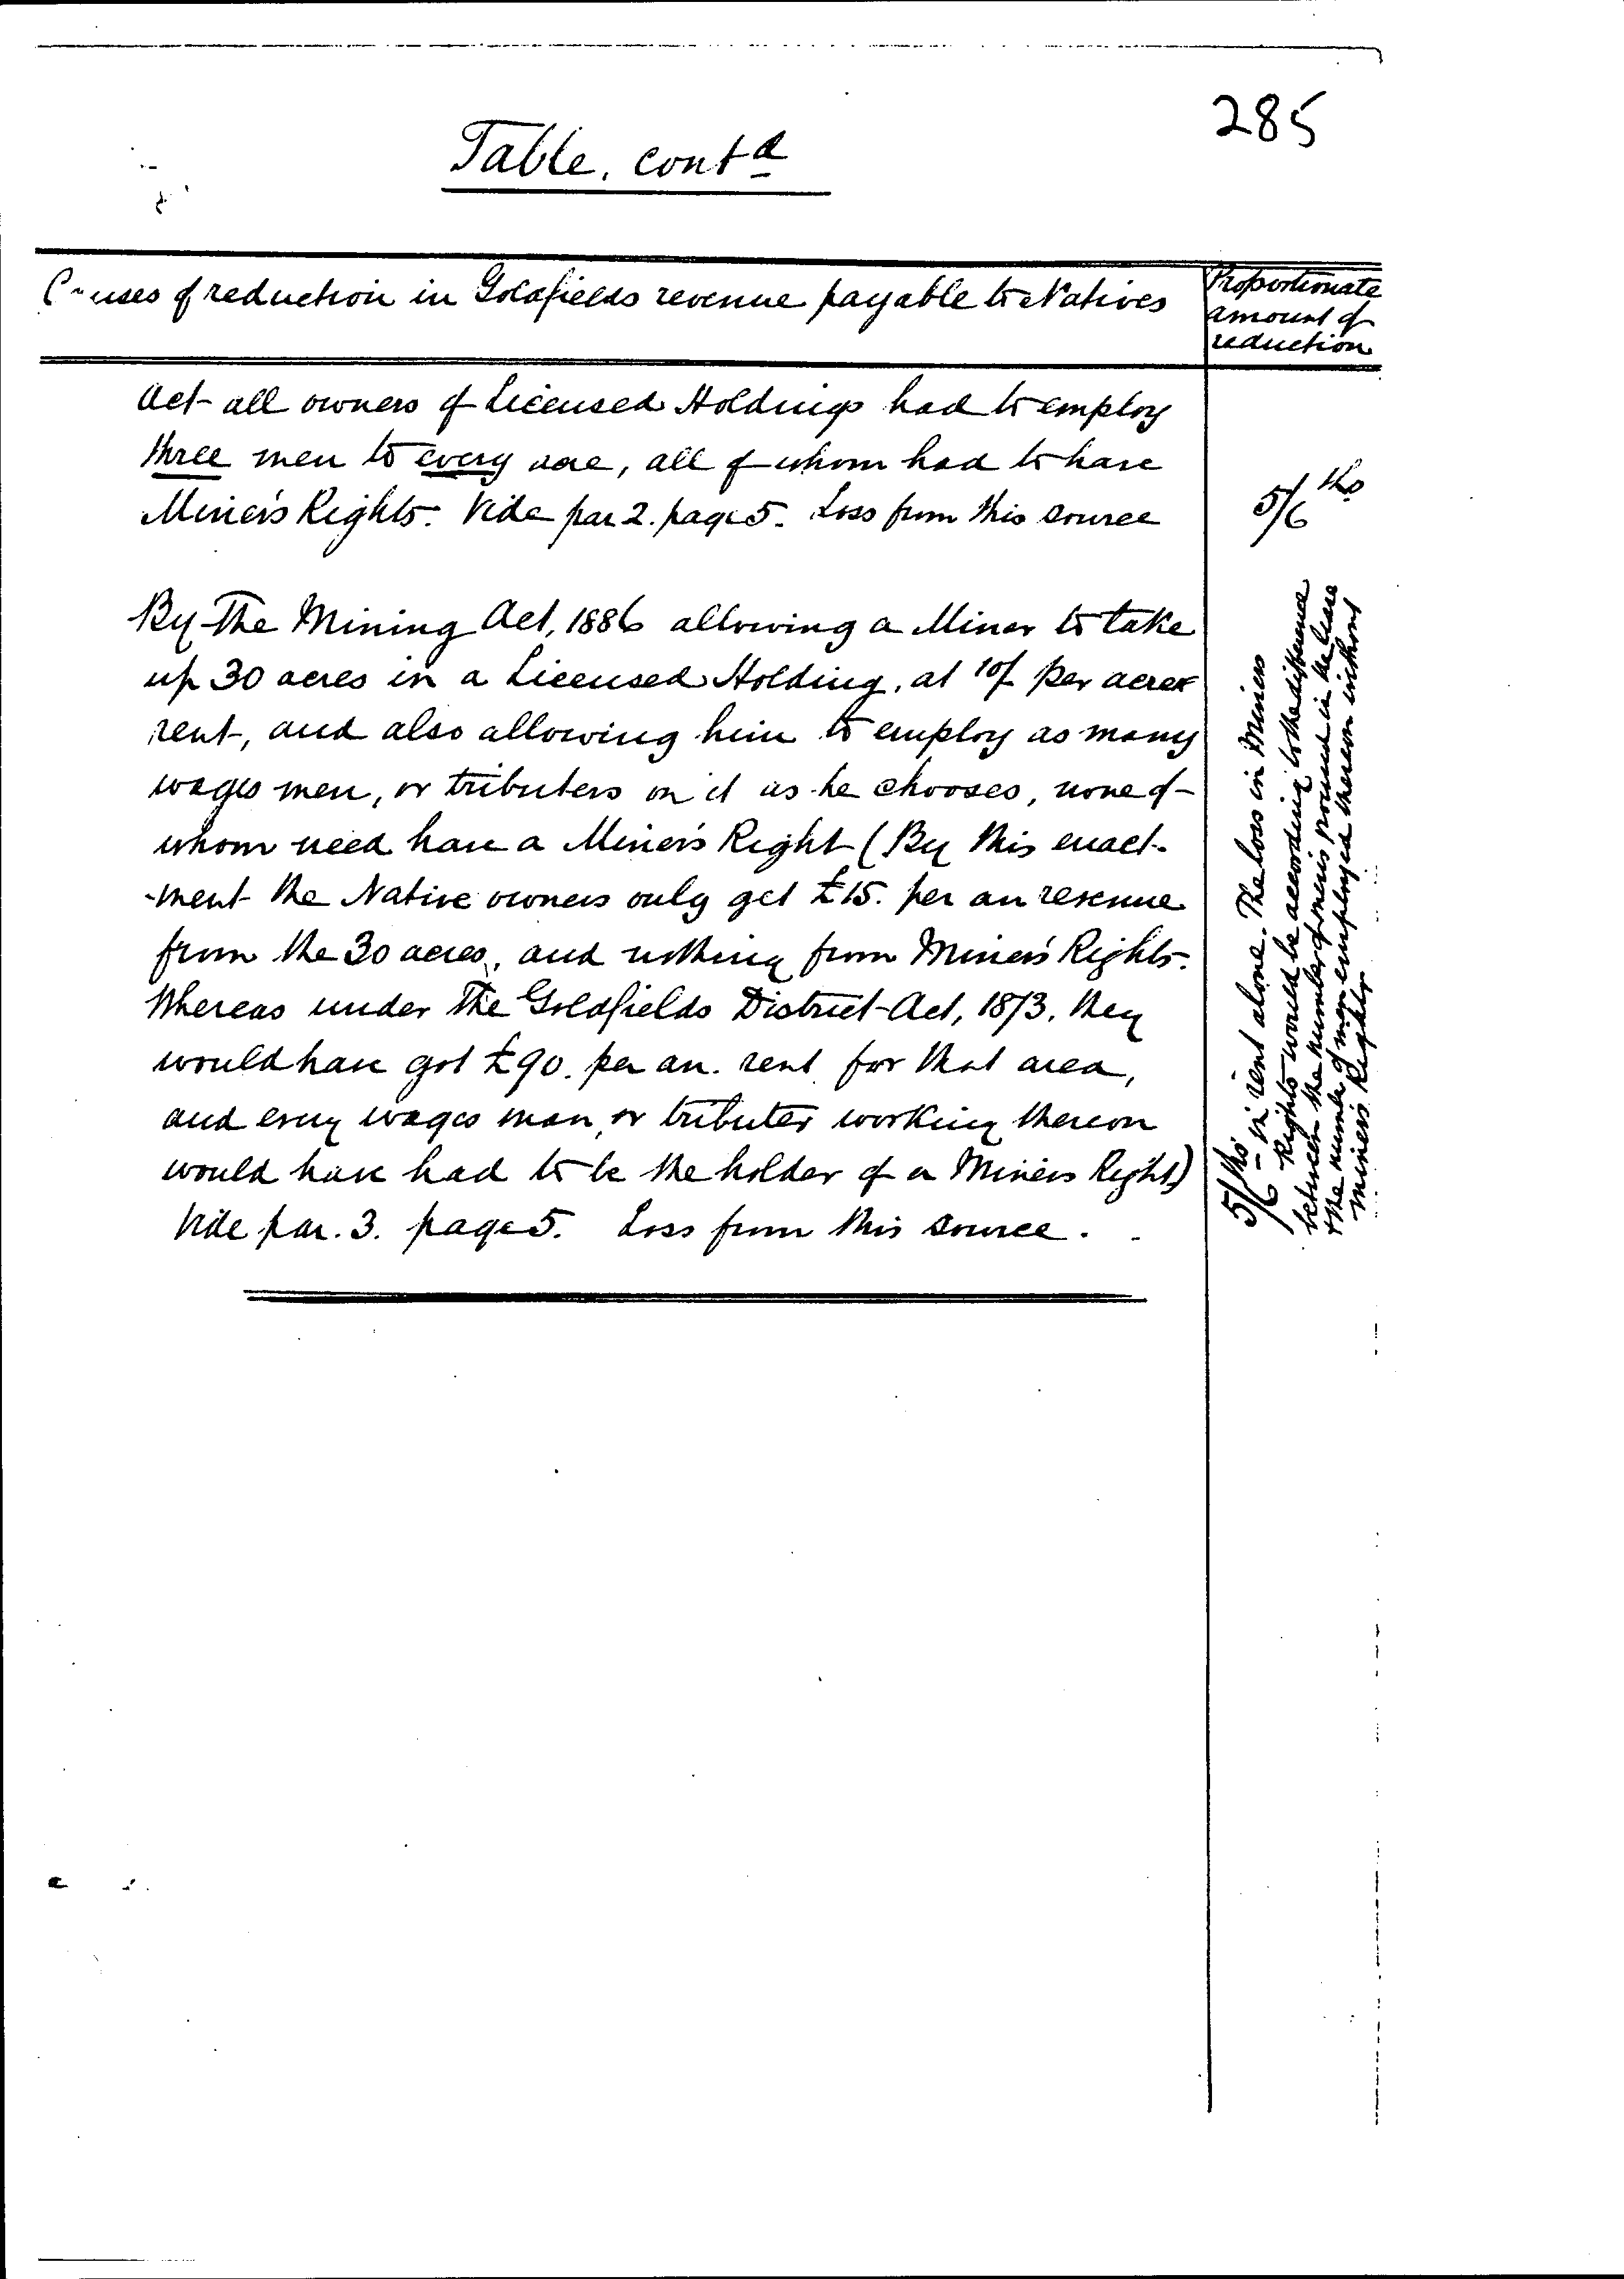 285
Table. contd
Causes of reduction in Goldfields revenue payable to Natives
Proportionate
amount of
reduction
Act all owners of Licensed Holdings had to employ
three men to every acre, all of whom had to have
Miner's Rights. Vide par 2. page 5. Loss from this source
5/6 ths
By The Mining Act, 1886 allowing a Miner to take
up 30 acres in a Licensed Holding, at 10/ per acre
rent, and also allowing him to employ as many
wages men, or tributers on it as he chooses, none of
whom need have a Miner's Right (By this enact-
-ment the Native owners only get £15. per an revenue
from the 30 acres, and nothing from Miner's Rights.
Whereas under The Goldfields District Act, 1873. they
would have got £90. per an. rent for that area,
and every wages man, or tributer working thereon
would have had to be the holder of a Miners Right)
Vide par. 3. page 5. Loss from this source.
5/6 ths in rent alone. The loss in Miners
Rights would be according to the difference
between the number of men's ground in the lease
& the number of men employed thereon without
Miner's Rights